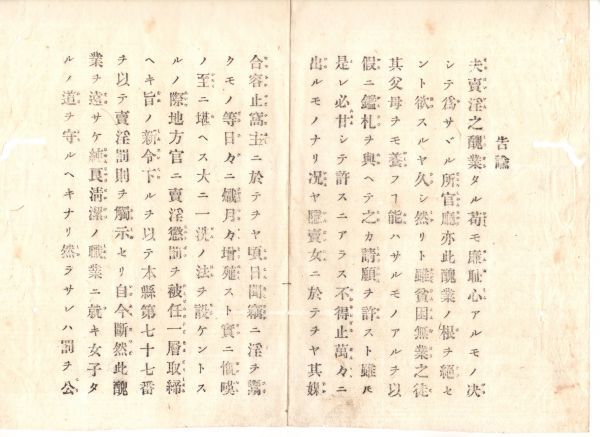 告諭
夫賣淫之醜業タル苟モ廉恥心アルモノヽ决
シテ爲サヾル所官廳亦此醜業ノ根ヲ絕セ
ント欲スルヤ久シ然リト雖貧困無業之徒
其父母ヲモ養フヿ能ハサルモノアルヲ以
假ニ鑑札ヲ與ヘテ之カ請願ヲ許スト雖𪜈
是レ必甘シテ許スニアラス不得止萬々ニ
出ルモノナリ况ヤ隱賣女ニ於テヲヤ其媒
合容止窩主ニ於テヲヤ頃日聞竊ニ淫ヲ鬻
クモノ等日々ニ熾月々ニ增殖スト實ニ慨嘆
ノ至ニ堪ヘス大ニ一洗ノ法ヲ設ケントス
ルノ際地方官ニ賣淫懲罰ヲ被任一層取締
ヘキ旨ノ新令下ルヲ以テ本縣第七十七番
ヲ以テ賣淫罰則ヲ觸示セリ自今斷然此醜
業ヲ遠サケ純良淸潔ノ職業ニ就キ女子タ
ルノ道ヲ守ルヘキナリ然ラサレハ罰ヲ公